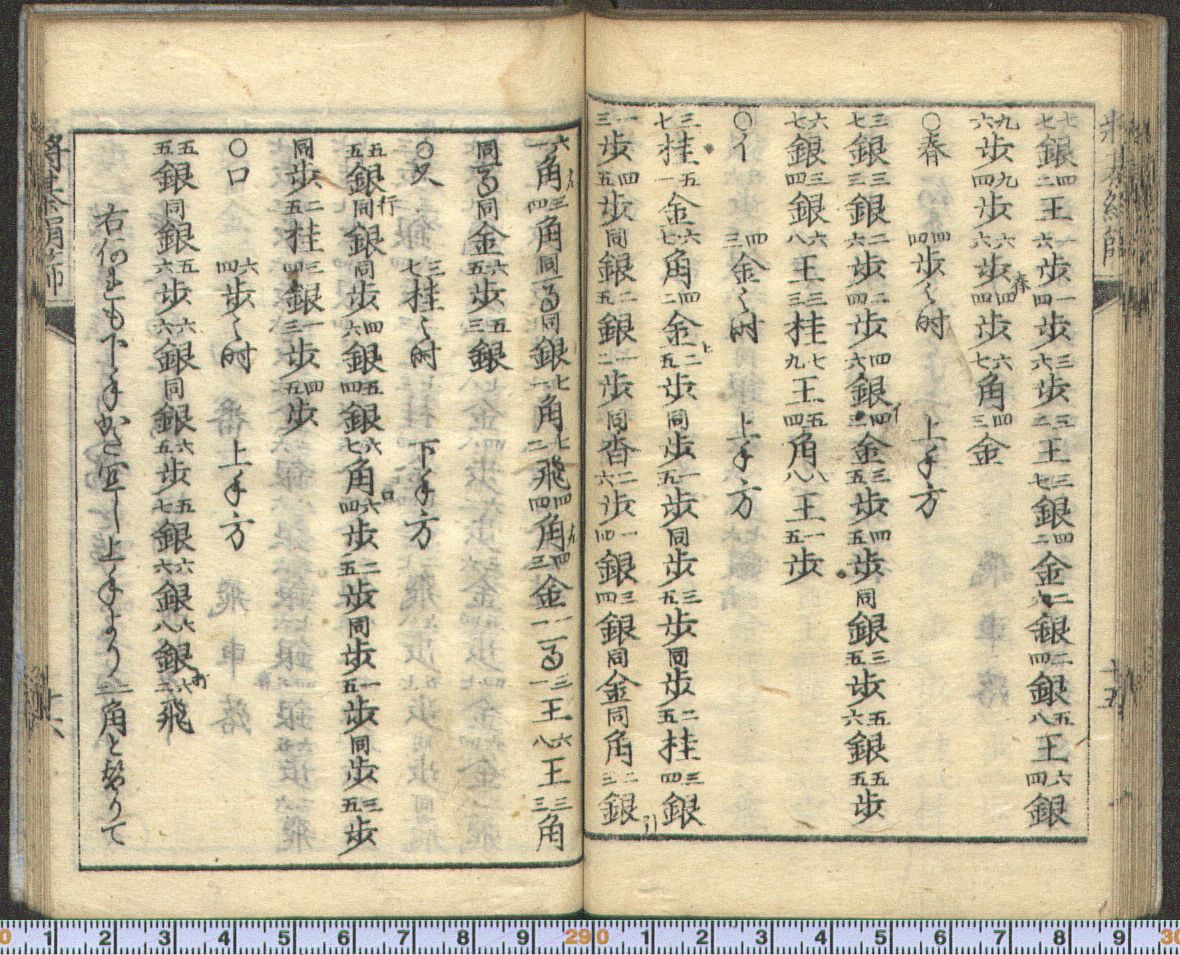 将棊絹篩 十五
七七銀四二王一六歩一四歩三六歩三二王三七銀四二金二六銀二四銀五八王六四銀
九六歩九四歩六六歩四四歩春六七角四三金
〇春 四四歩之時 上手方
三七銀三三銀二六歩二四歩四六銀四三金イ三五歩四五歩同銀三五銀五六銀五五歩
六七銀三四銀六八王三三桂七九王五四角八八王一五歩
〇イ 四三金之時 上手方
三七桂五一金六七角四二金上二五歩同歩一五歩同歩三五歩同歩二五桂三四銀
一三歩四五歩同銀二五銀一二歩同香二六歩一四銀三四銀同金同角二三銀引
六一角三四角同る同銀七一角七二飛四四角四三金一一る三一王六八王三三角
同る同金六五歩五三銀
〇又 三七桂之時 下手方
五五銀行同銀同歩四六銀五四銀六七角六四歩ロ二五歩同歩一五歩同歩三五歩
同歩二五桂三四銀一三歩四五歩
〇ロ 六四歩之時 上手方
五五銀同銀五六歩六六銀同銀六五歩五七銀六六銀六八銀打八二飛
右何れも下手かさ宜し上手より二二角と替りて
将棊絹篩 十六